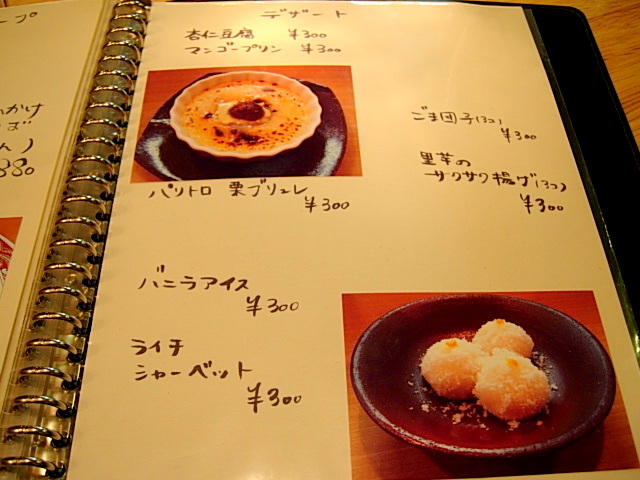 ープ
デザート
杏仁豆腐 ¥300
マンゴープリン ¥300
パリトロ 栗ブリュレ
¥300
バニラアイス
¥300
ライチ
シャーベット
¥300
ごま団子(3コ)
¥300
里芋の
サクサク揚げ(3コ)
¥300
かけ
ば
ん)
880